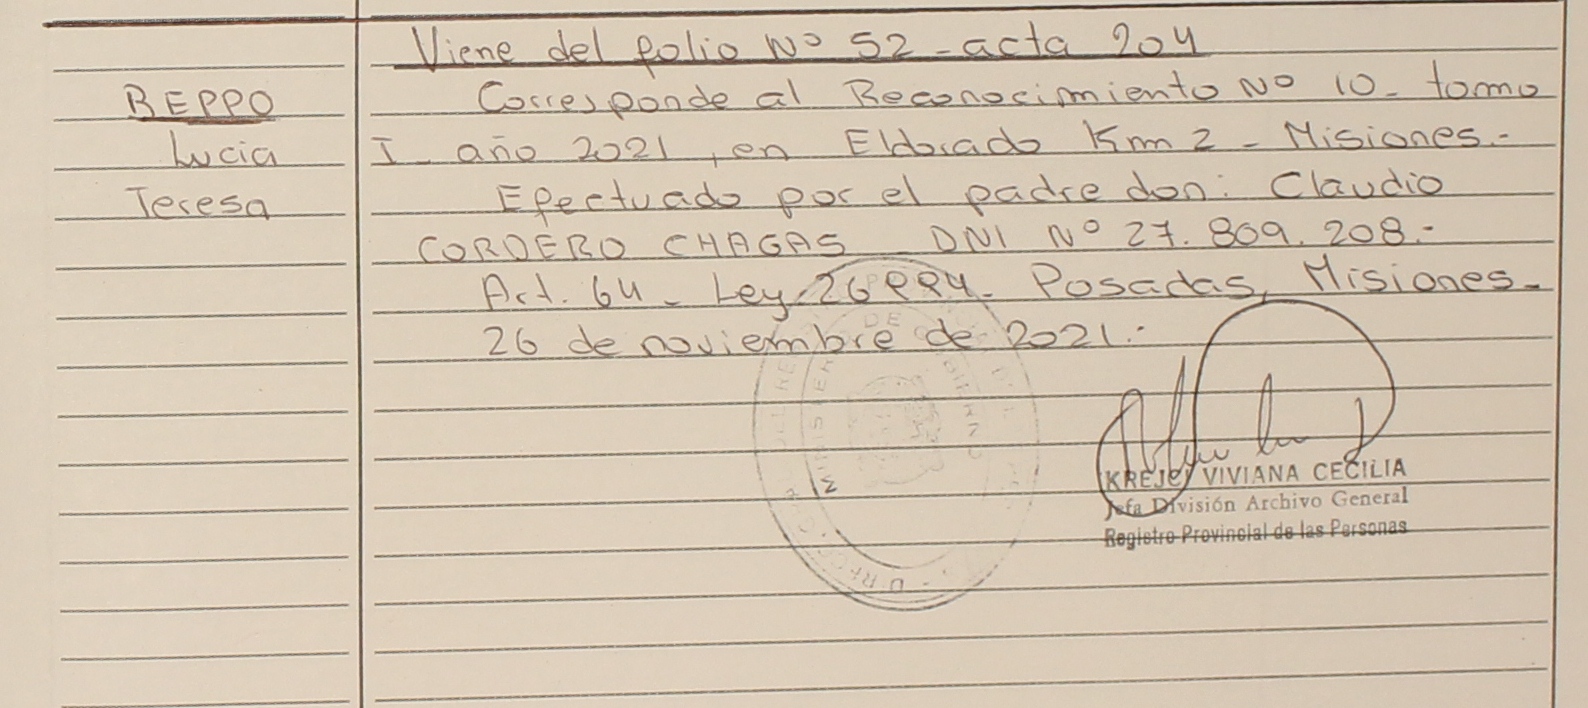 Viene del folio Nº 52 - acta 204
BEPPO
Lucia
Teresa
Corresponde al Reconocimiento Nº 10 - tomo
I - año 2021, en Eldorado Km 2 - Misiones.-
Efectuado por el padre don: Claudio
CORDERO CHAGAS DNI Nº 27.809.208.-
Art. 64 - Ley 26994 - Posadas, Misiones -
26 de noviembre de 2021.-
KREJCI VIVIANA CECILIA
Jefa División Archivo General
Registro Provincial de las Personas